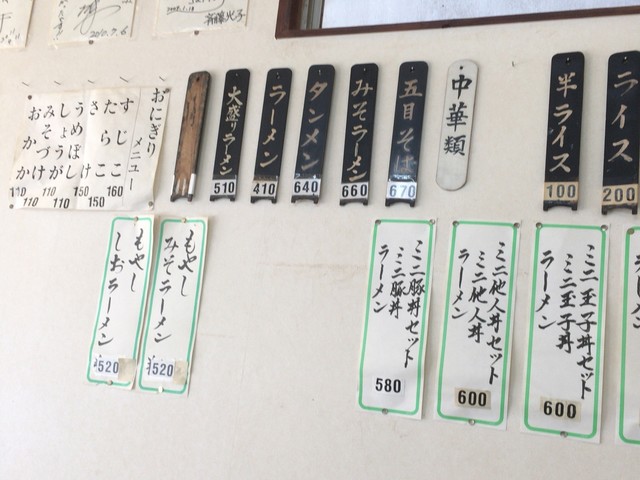 おにぎり
メニュー
すじこ 160
たらこ 150
さけ 150
うめぼし 110
しょうが 110
みそづけ 110
おかか 110
ライス 200
半ライス 100
中華類
五目そば 670
みそラーメン 660
タンメン 640
ラーメン 410
大盛りラーメン 510
ミニ玉子丼セット
ミニ玉子丼
ラーメン
600
ミニ他人丼セット
ミニ他人丼
ラーメン
600
ミニ豚丼セット
ミニ豚丼
ラーメン
580
もやし
みそラーメン
520
もやし
しおラーメン
520